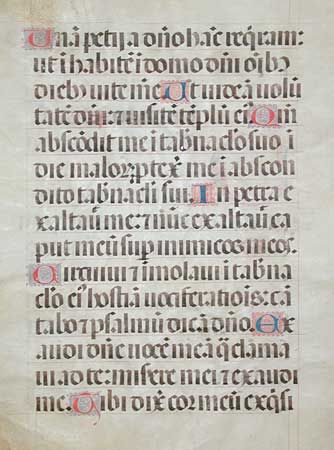 Unā petij a dño hāc reqͥram:
ut ī habitē ī domo dm̄ oīb᷒a
dieb᷒ vite mee Ut videā uolū
tatē dm̄: ⁊ uisitē teplū eī Qm̄
abscōdit me ī tab̄naclo suo ī
die malor̨ ptex̄ me ī abscon
dito tab̄nacli sui. In petra e
xaltaū me: ⁊ nūc exaltaū ca
put meū sup inimicos meos.
Circuiui ⁊ īmolaui ī tab̄na
clo eī hostiā uociferatiōis: cā
tabo ⁊ psalmū dicā dño. Ex
audi dn̄e uocē meā q̄ clama
ui ad te: misere mei ⁊ exaudi
me. Tibi dix̄ cor meū exq̄si